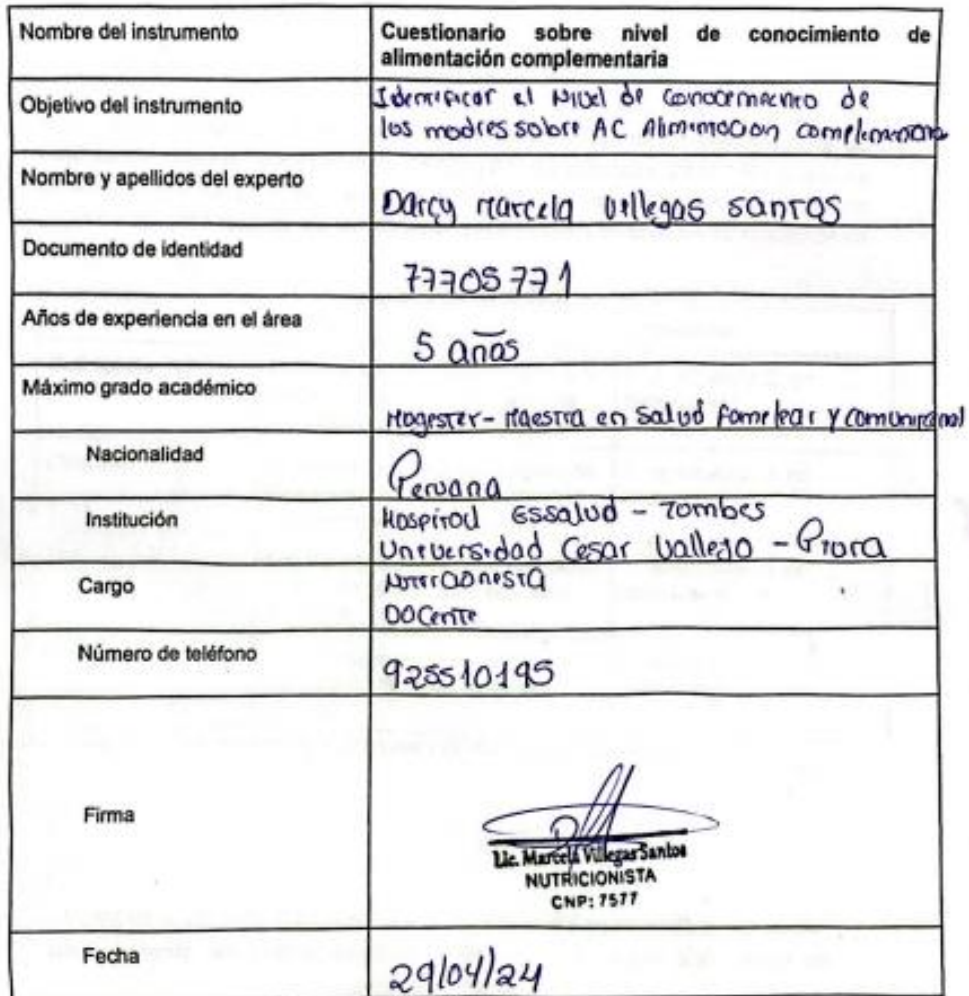 Nombre del instrumento
Cuestionario sobre nivel de conocimiento de
alimentación complementaria
Objetivo del instrumento
Identificar el Nivel de conocimiento de
las madres sobre AC Alimentacion complementaria
Nombre y apellidos del experto
Darcy Marcela Villegas Santos
Documento de identidad
77705771
Años de experiencia en el área
5 años
Máximo grado académico
Magister - Maestra en Salud Familiar y comunitaria
Nacionalidad
Peruana
Institución
Hospital Essalud - Tumbes
Universidad Cesar Vallejo - Piura
Cargo
Nutricionista
Docente
Número de teléfono
925510195
Firma
Lic. Marcela Villegas Santos
NUTRICIONISTA
CNP: 7577
Fecha
29/04/24